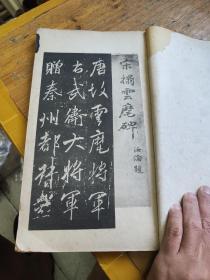 宋搨雲麾碑
唐故雲麾將軍
右武衛大將軍
贈秦州都督彭